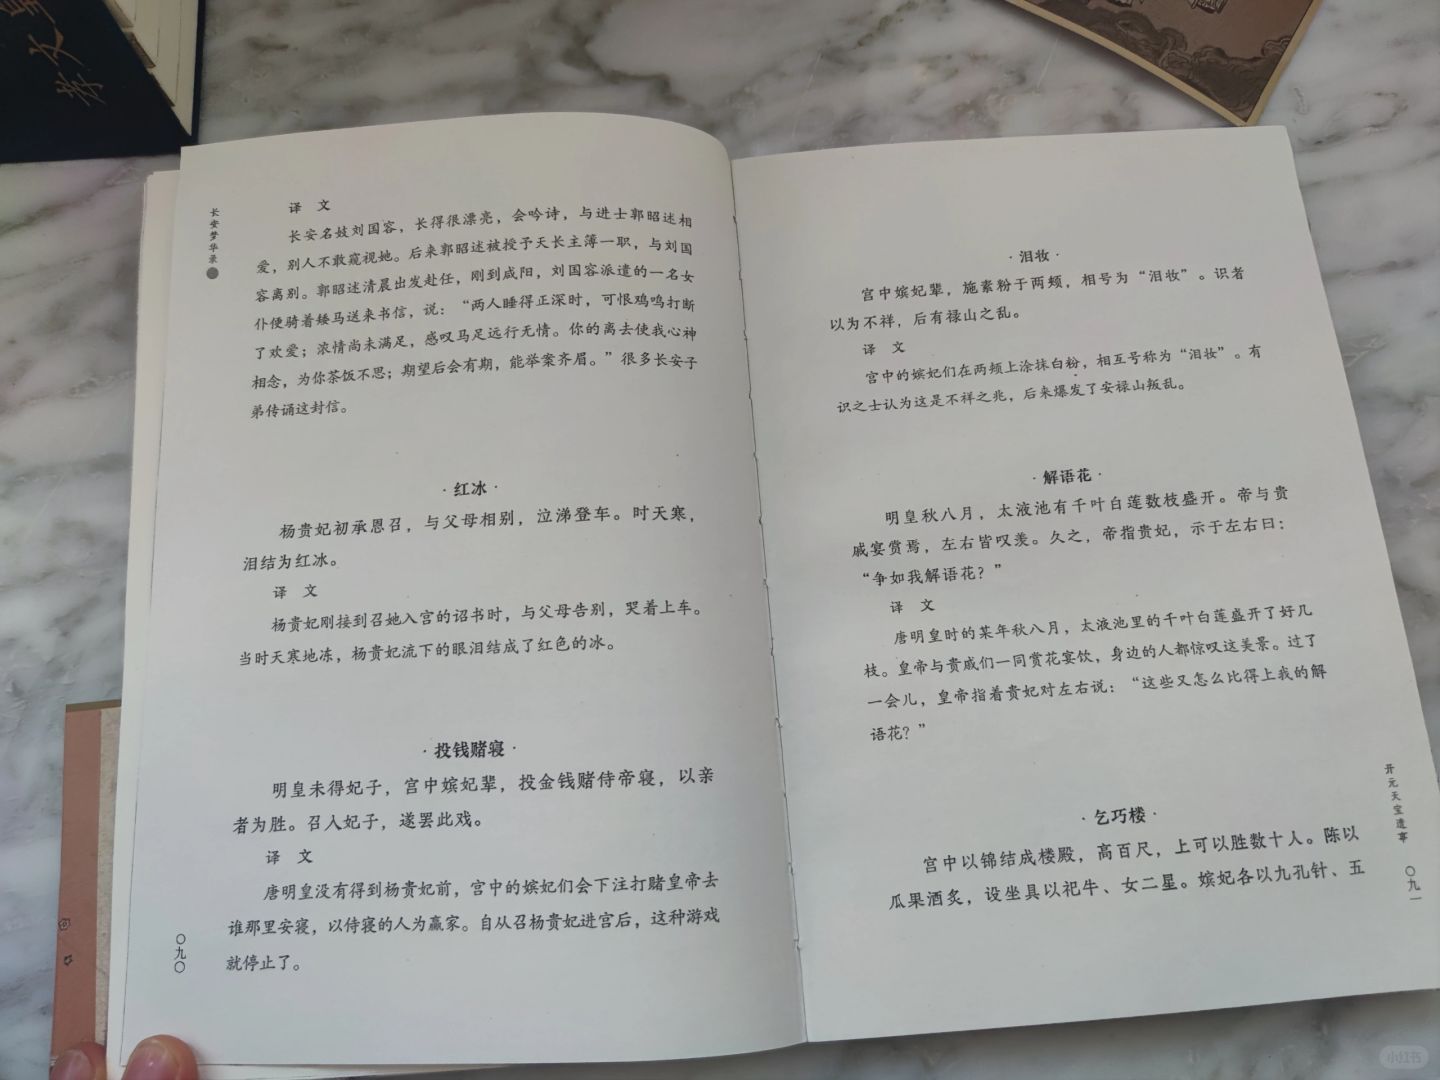 李文
长安梦华录
译 文
长安名妓刘国容，长得很漂亮，会吟诗，与进士郭昭述相
爱，别人不敢窥视她。后来郭昭述被授予天长主簿一职，与刘国
容离别。郭昭述清晨出发赴任，刚到咸阳，刘国容派遣的一名女
仆便骑着矮马送来书信，说：“两人睡得正深时，可恨鸡鸣打断
了欢爱；浓情尚未满足，感叹马足远行无情。你的离去使我心神
相念，为你茶饭不思；期望后会有期，能举案齐眉。”很多长安子
弟传诵这封信。
·红冰·
杨贵妃初承恩召，与父母相别，泣涕登车。时天寒，
泪结为红冰。
译 文
杨贵妃刚接到召她入宫的诏书时，与父母告别，哭着上车。
当时天寒地冻，杨贵妃流下的眼泪结成了红色的冰。
·投钱赌寝·
明皇未得妃子，宫中嫔妃辈，投金钱赌侍帝寝，以亲
者为胜。召入妃子，遂罢此戏。
译 文
唐明皇没有得到杨贵妃前，宫中的嫔妃们会下注打赌皇帝去
谁那里安寝，以侍寝的人为赢家。自从召杨贵妃进宫后，这种游戏
就停止了。
〇九〇
·泪妆·
宫中嫔妃辈，施素粉于两颊，相号为“泪妆”。识者
以为不祥，后有禄山之乱。
译 文
宫中的嫔妃们在两颊上涂抹白粉，相互号称为“泪妆”。有
识之士认为这是不祥之兆，后来爆发了安禄山叛乱。
·解语花·
明皇秋八月，太液池有千叶白莲数枝盛开。帝与贵
戚宴赏焉，左右皆叹羡。久之，帝指贵妃，示于左右曰：
“争如我解语花？”
译 文
唐明皇时的某年秋八月，太液池里的千叶白莲盛开了好几
枝。皇帝与贵戚们一同赏花宴饮，身边的人都惊叹这美景。过了
一会儿，皇帝指着贵妃对左右说：“这些又怎么比得上我的解
语花？”
·乞巧楼·
宫中以锦结成楼殿，高百尺，上可以胜数十人。陈以
瓜果酒炙，设坐具以祀牛、女二星。嫔妃各以九孔针、五
开元天宝遗事
〇九一
小红书